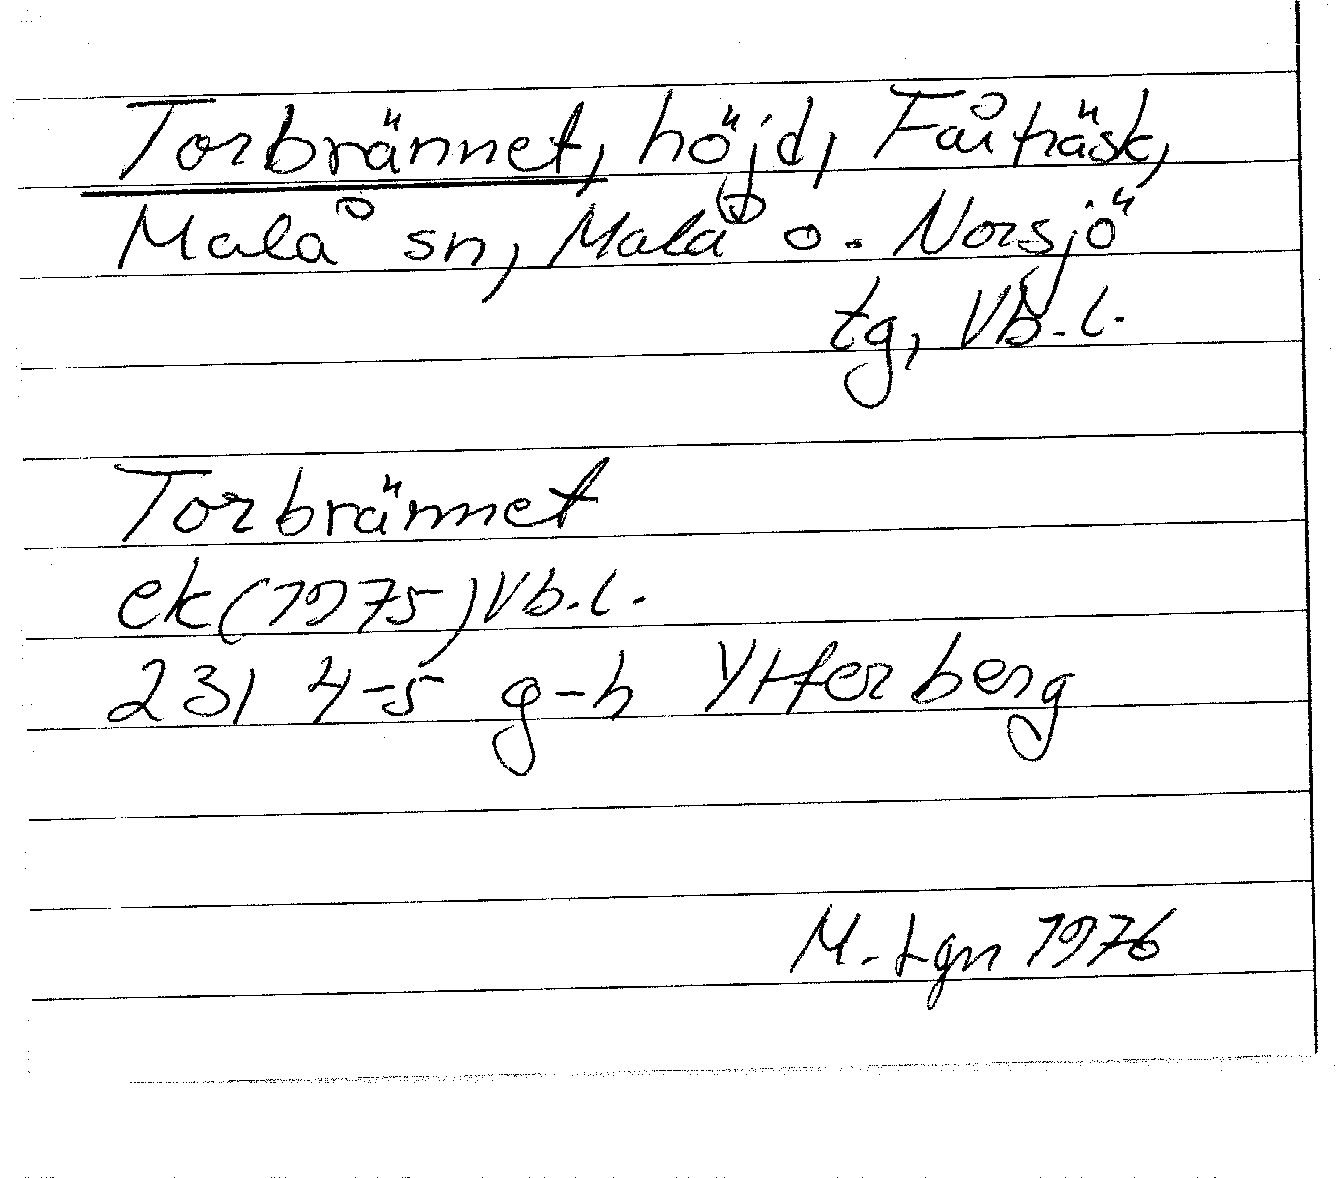 Torbrännet, höjd, Fårträsk,
Malå sn, Malå o. Norsjö
tg, Vb.l.
Torbrännet
ek (1975) Vb.l.
231 4-5 g-h Ytterberg
M. Lgn 1976